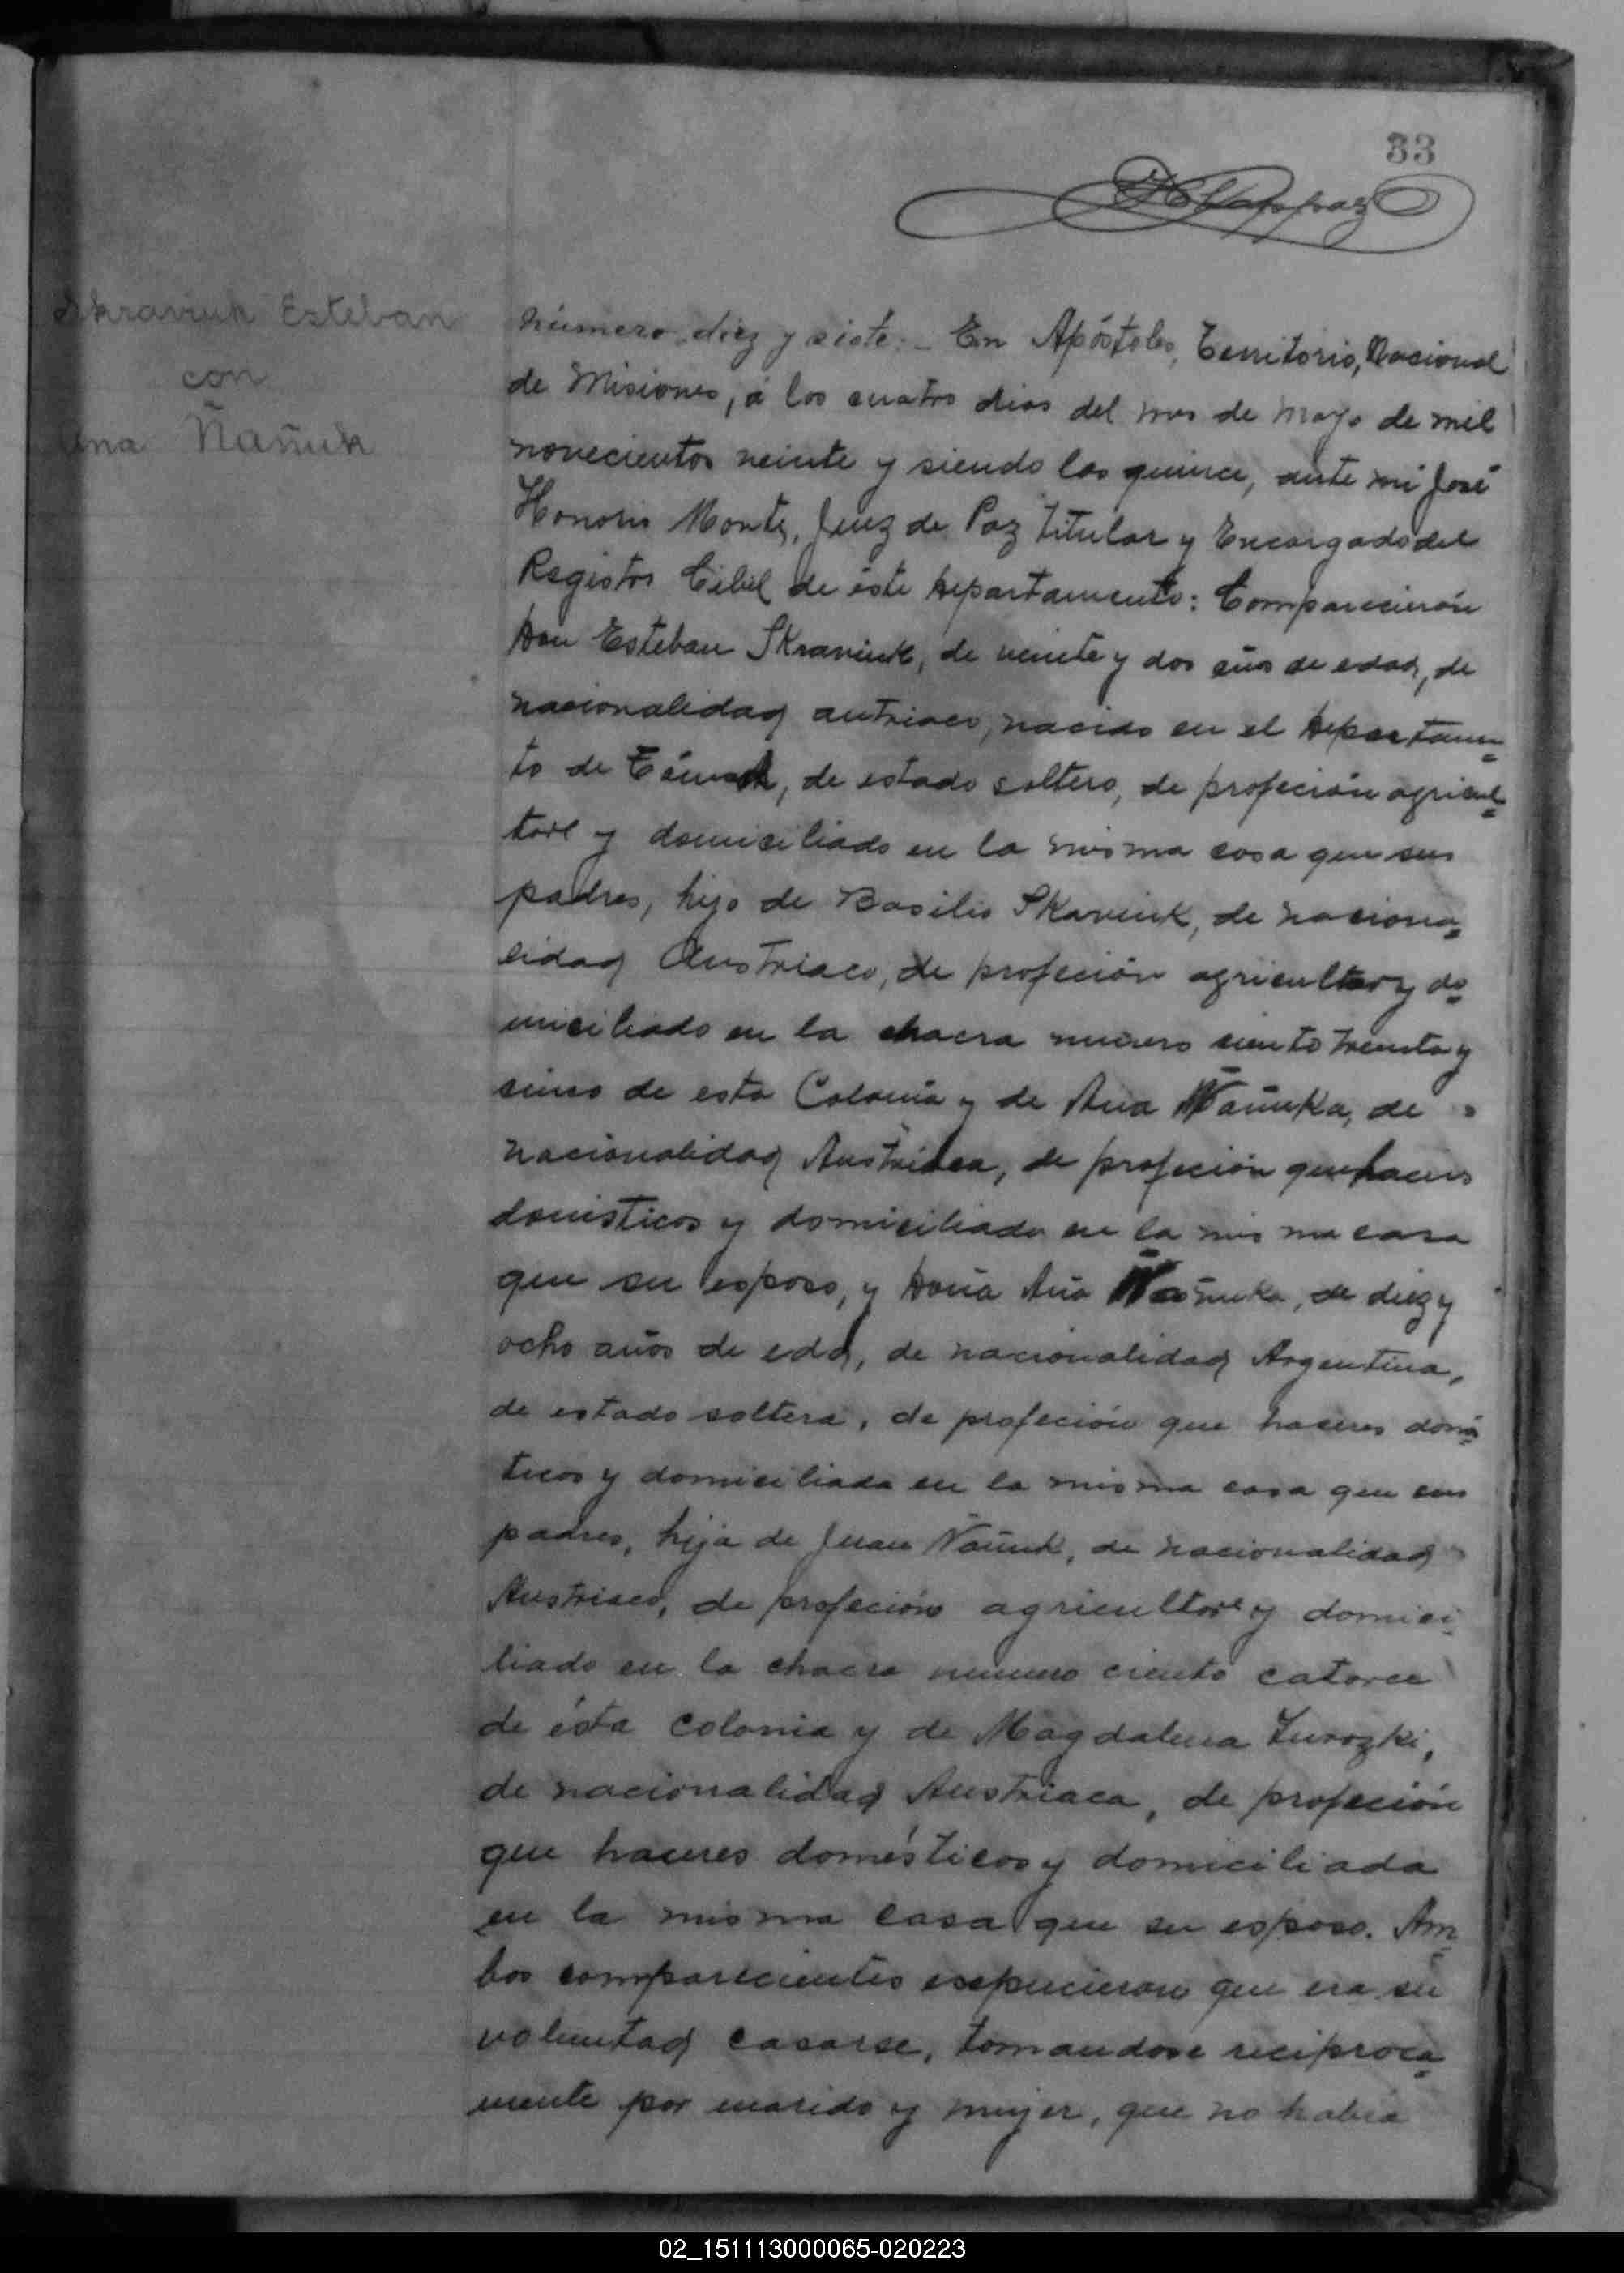 33
Skraviuk Esteban
con
Ana Ñañuk
Número diez y siete:- En Apóstoles, Territorio, Nacional
de Misiones, á los cuatro dias del mes de mayo de mil
novecientos veinte y siendo las quince, ante mi José
Honorio Montes, Juez de Paz titular y Encargado del
Registro Cibil de éste Departamento: Comparecierón
Don Esteban SKraviuk, de veinte y dos años de edad, de
nacionalidad autriaco, nacido en el Departamen=
to de, de estado soltero, de profeción agricul=
tore y domiciliado en la misma casa que sus
padres, hijo de Basilio SKaviuk, de naciona=
lidad Austriaco, de profeción agricultor y do=
miciliado en la chacra número siento treinta y
sinco de esta Colonia y de Ana Ñañuka, de
nacionalidad Austriaca, de profeción quehaceres
domésticos y domiciliada en la mis ma casa
que su esposo, y Doña Ana Ñañuka, de diez y
ocho años de edd, de nacionalidad Argentina,
de estado soltera, de profeción que haceres domés=
ticos y domiciliada en la misma casa que sus
padres, hija de Juan Ñañuk, de nacionalidad
Austriaco, de profeción agricultore y domici=
liado en la chacra numero ciento catorce
de ésta colonia y de Magdalena Zurozki,
de nacionalidad Austriaca, de profeción
que haceres domésticos y domiciliada
en la mis ma casa que su esposo. Am=
bos comparecientes esepucieron que era su
voluntad casarse, tomandose reciproca=
mente por marido y mujer, que no habia
02_151113000065-020223